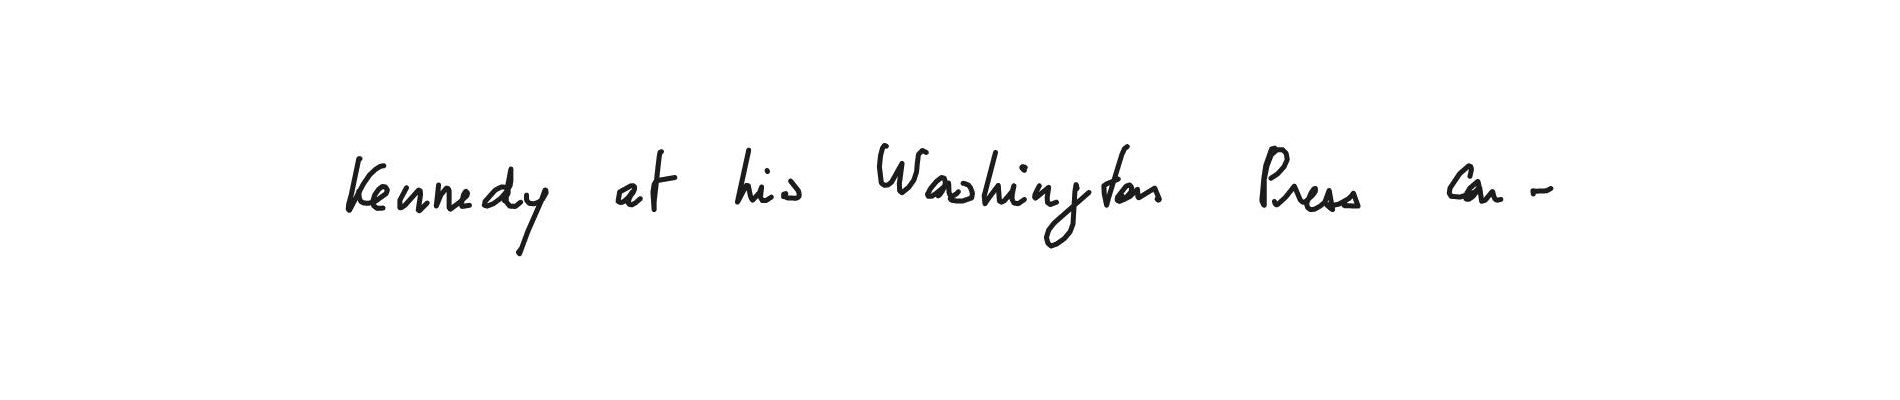 Kennedy at his Washington Press con-